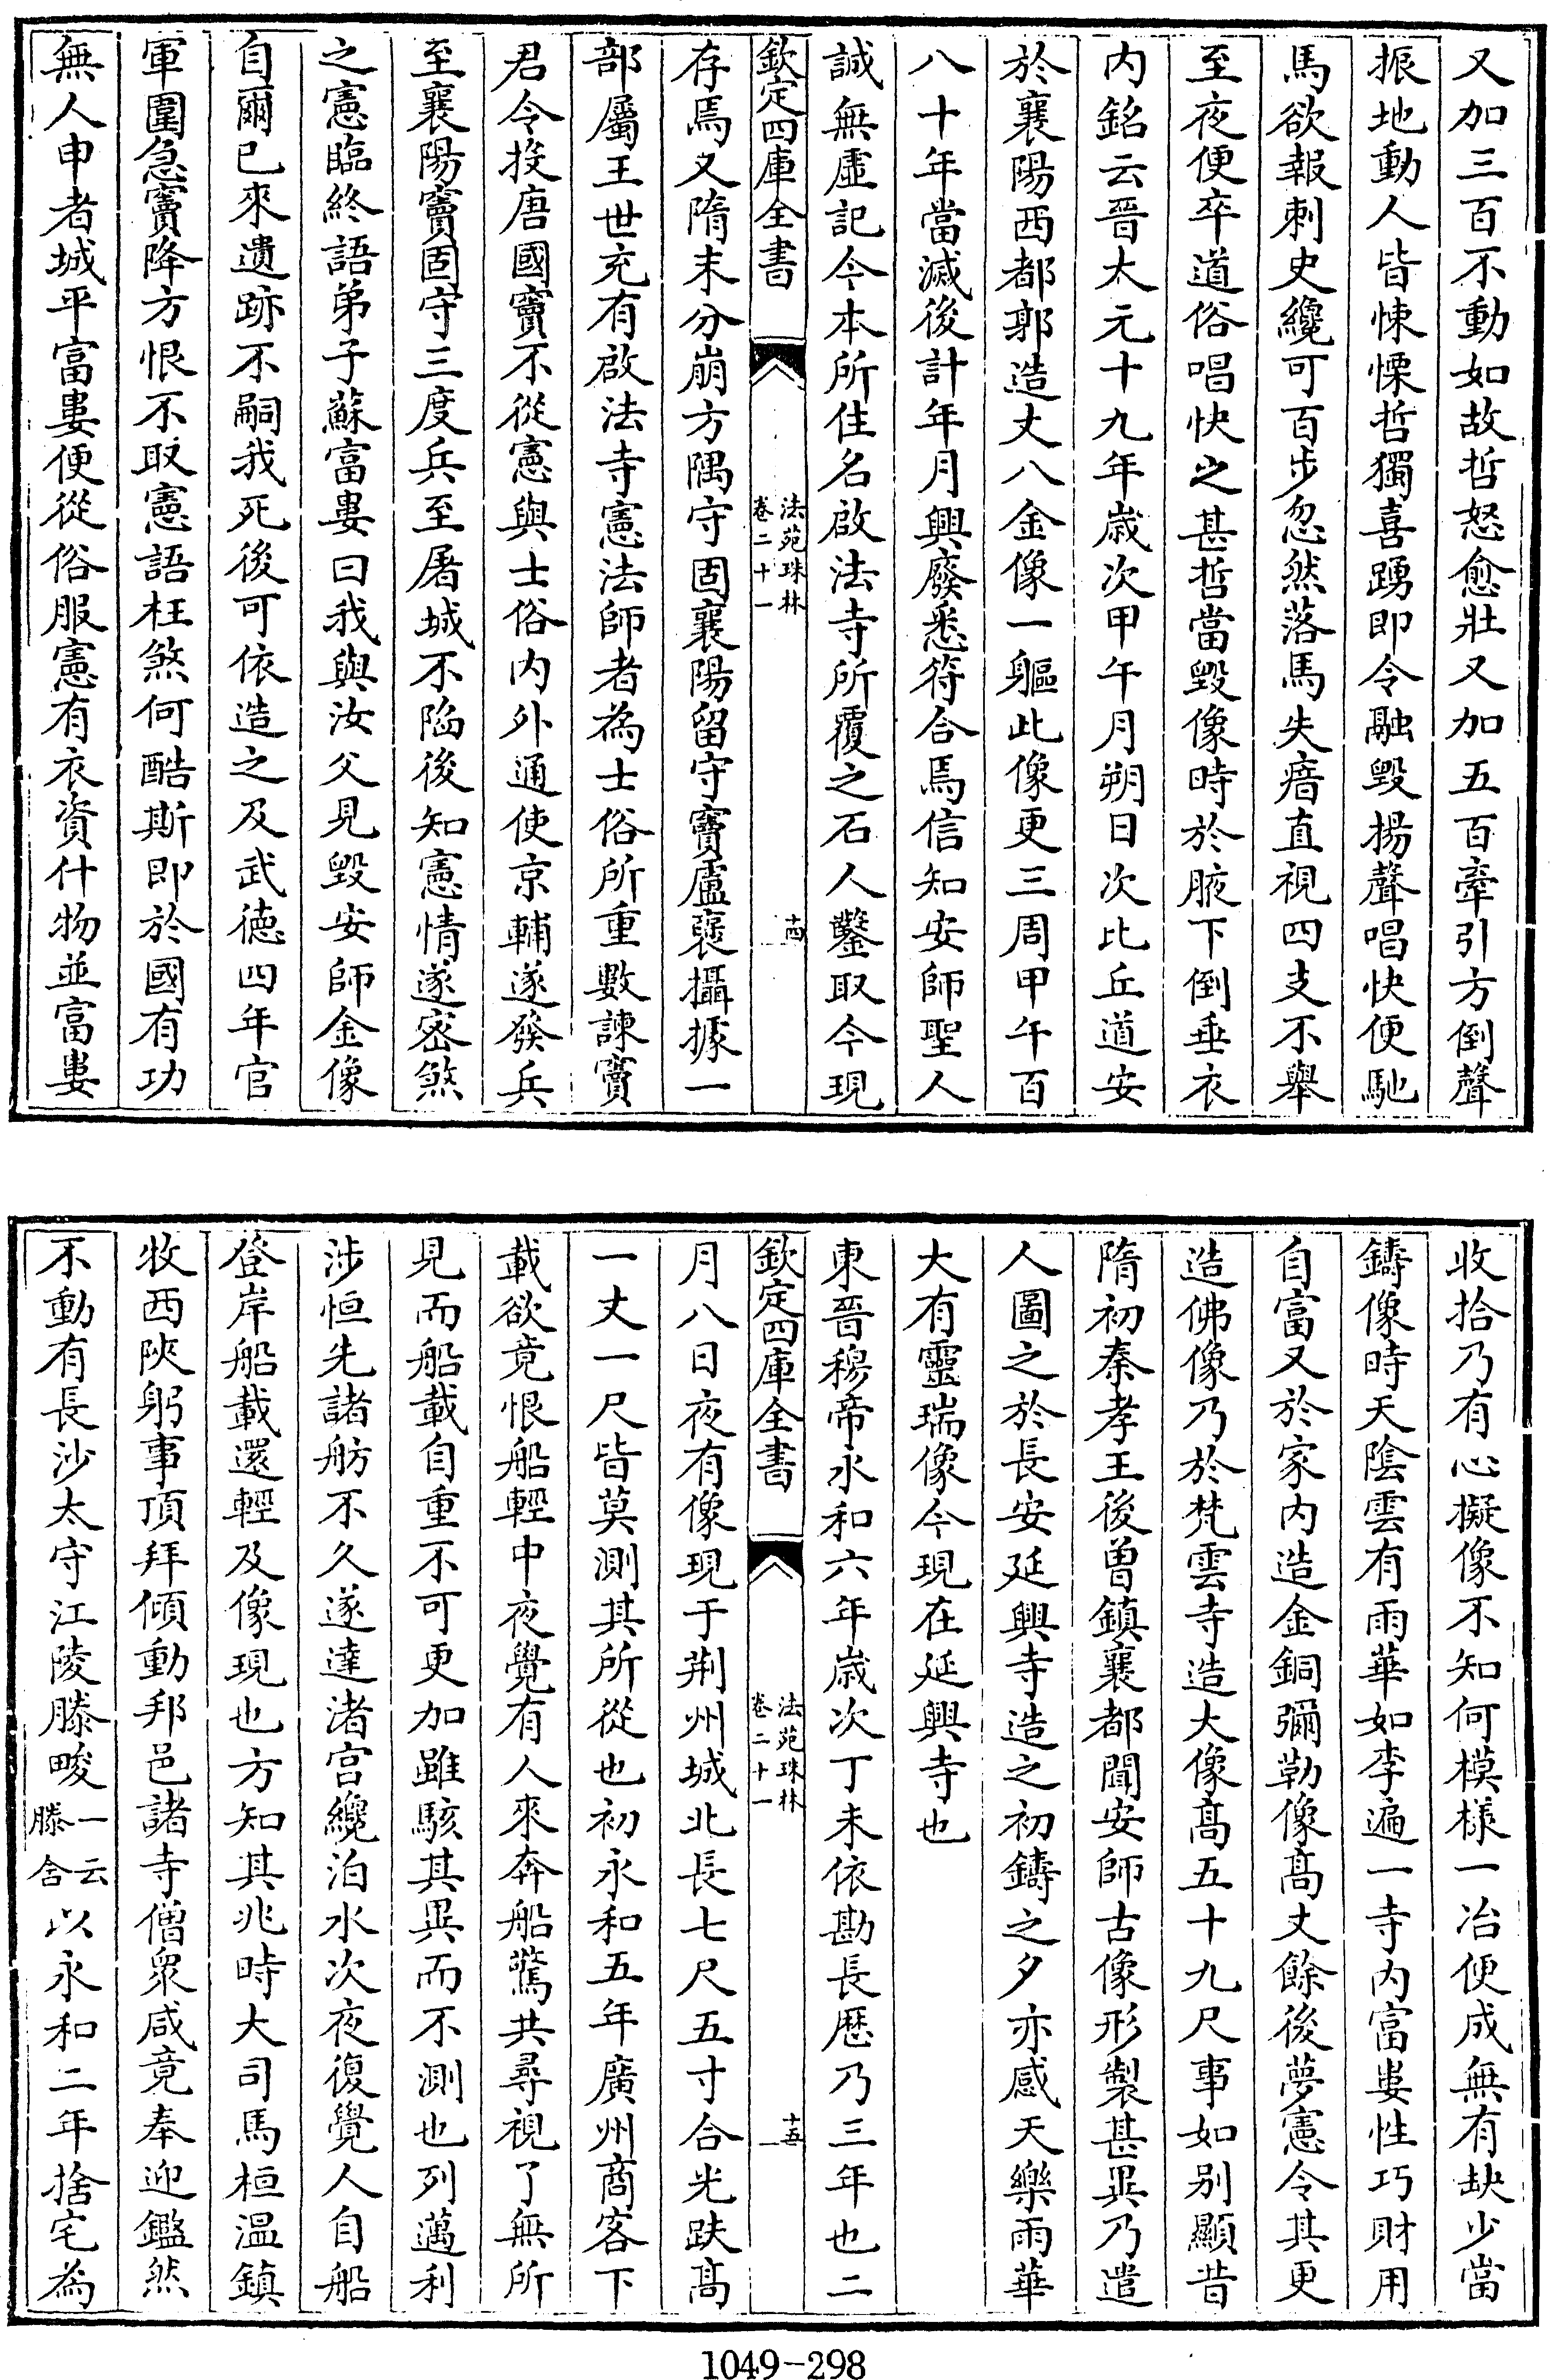 又加三百不動如故哲怒愈壯又加五百牽引方倒聲
振地動人皆悚慄哲獨喜踴即令融毁揚聲唱快便馳
馬欲報刺史纔可百步忽然落馬失瘖直視四支不舉
至夜便卒道俗唱快之甚哲當毀像時於腋下倒垂衣
内銘云晉太元十九年歳次甲午月朔日次比丘道安
於襄陽西都郭造丈八金像一軀此像更三周甲午百
八十年當滅後計年月興廢悉符合焉信知安師聖人
誠無虛記今本所住名啟法寺所覆之石人鑿取今現
欽定四庫全書
法苑珠林
卷二十一
十四
存焉又隋末分崩方隅守固襄陽留守竇盧褒攝據一
部屬王世充有啟法寺憲法師者為士俗所重數諫竇
君令投唐國竇不從憲與士俗内外通使京輔遂發兵
至襄陽竇固守三度兵至屠城不陷後知憲情遂密煞
之憲臨終語弟子蘇富婁曰我與汝父見毀安師金像
自爾已來遺跡不嗣我死後可依造之及武德四年官
軍圍急竇降方恨不取憲語枉煞何酷斯即於國有功
無人申者城平富婁便從俗服憲有衣資什物並富婁
收拾乃有心擬像不知何模樣一冶便成無有缺少當
鑄像時天陰雲有雨華如李遍一寺内富婁性巧財用
自富又於家内造金銅彌勒像髙丈餘後夢憲令其更
造佛像乃於梵雲寺造大像髙五十九尺事如别顯昔
隋初秦孝王後曽鎮襄都聞安師古像形製甚異乃遣
人圖之於長安延興寺造之初鑄之夕亦感天樂雨華
大有靈瑞像今現在延興寺也
東晉穆帝永和六年歳次丁未依勘長歷乃三年也二
欽定四庫全書
法苑珠林
卷二十一
十五
月八日夜有像現于荆州城北長七尺五寸合光趺髙
一丈一尺皆莫測其所從也初永和五年廣州商客下
載欲竟恨船輕中夜覺有人來奔船驚共尋視了無所
見而船載自重不可更加雖駭其異而不測也列邁利
涉恒先諸舫不久遂達渚宫纔泊水次夜復覺人自船
登岸船載還輕及像現也方知其兆時大司馬桓温鎮
牧西陝躬事頂拜傾動邦邑諸寺僧衆咸竟奉迎鑑然
不動有長沙太守江陵滕畯一云滕含以永和二年捨宅為
1049-298